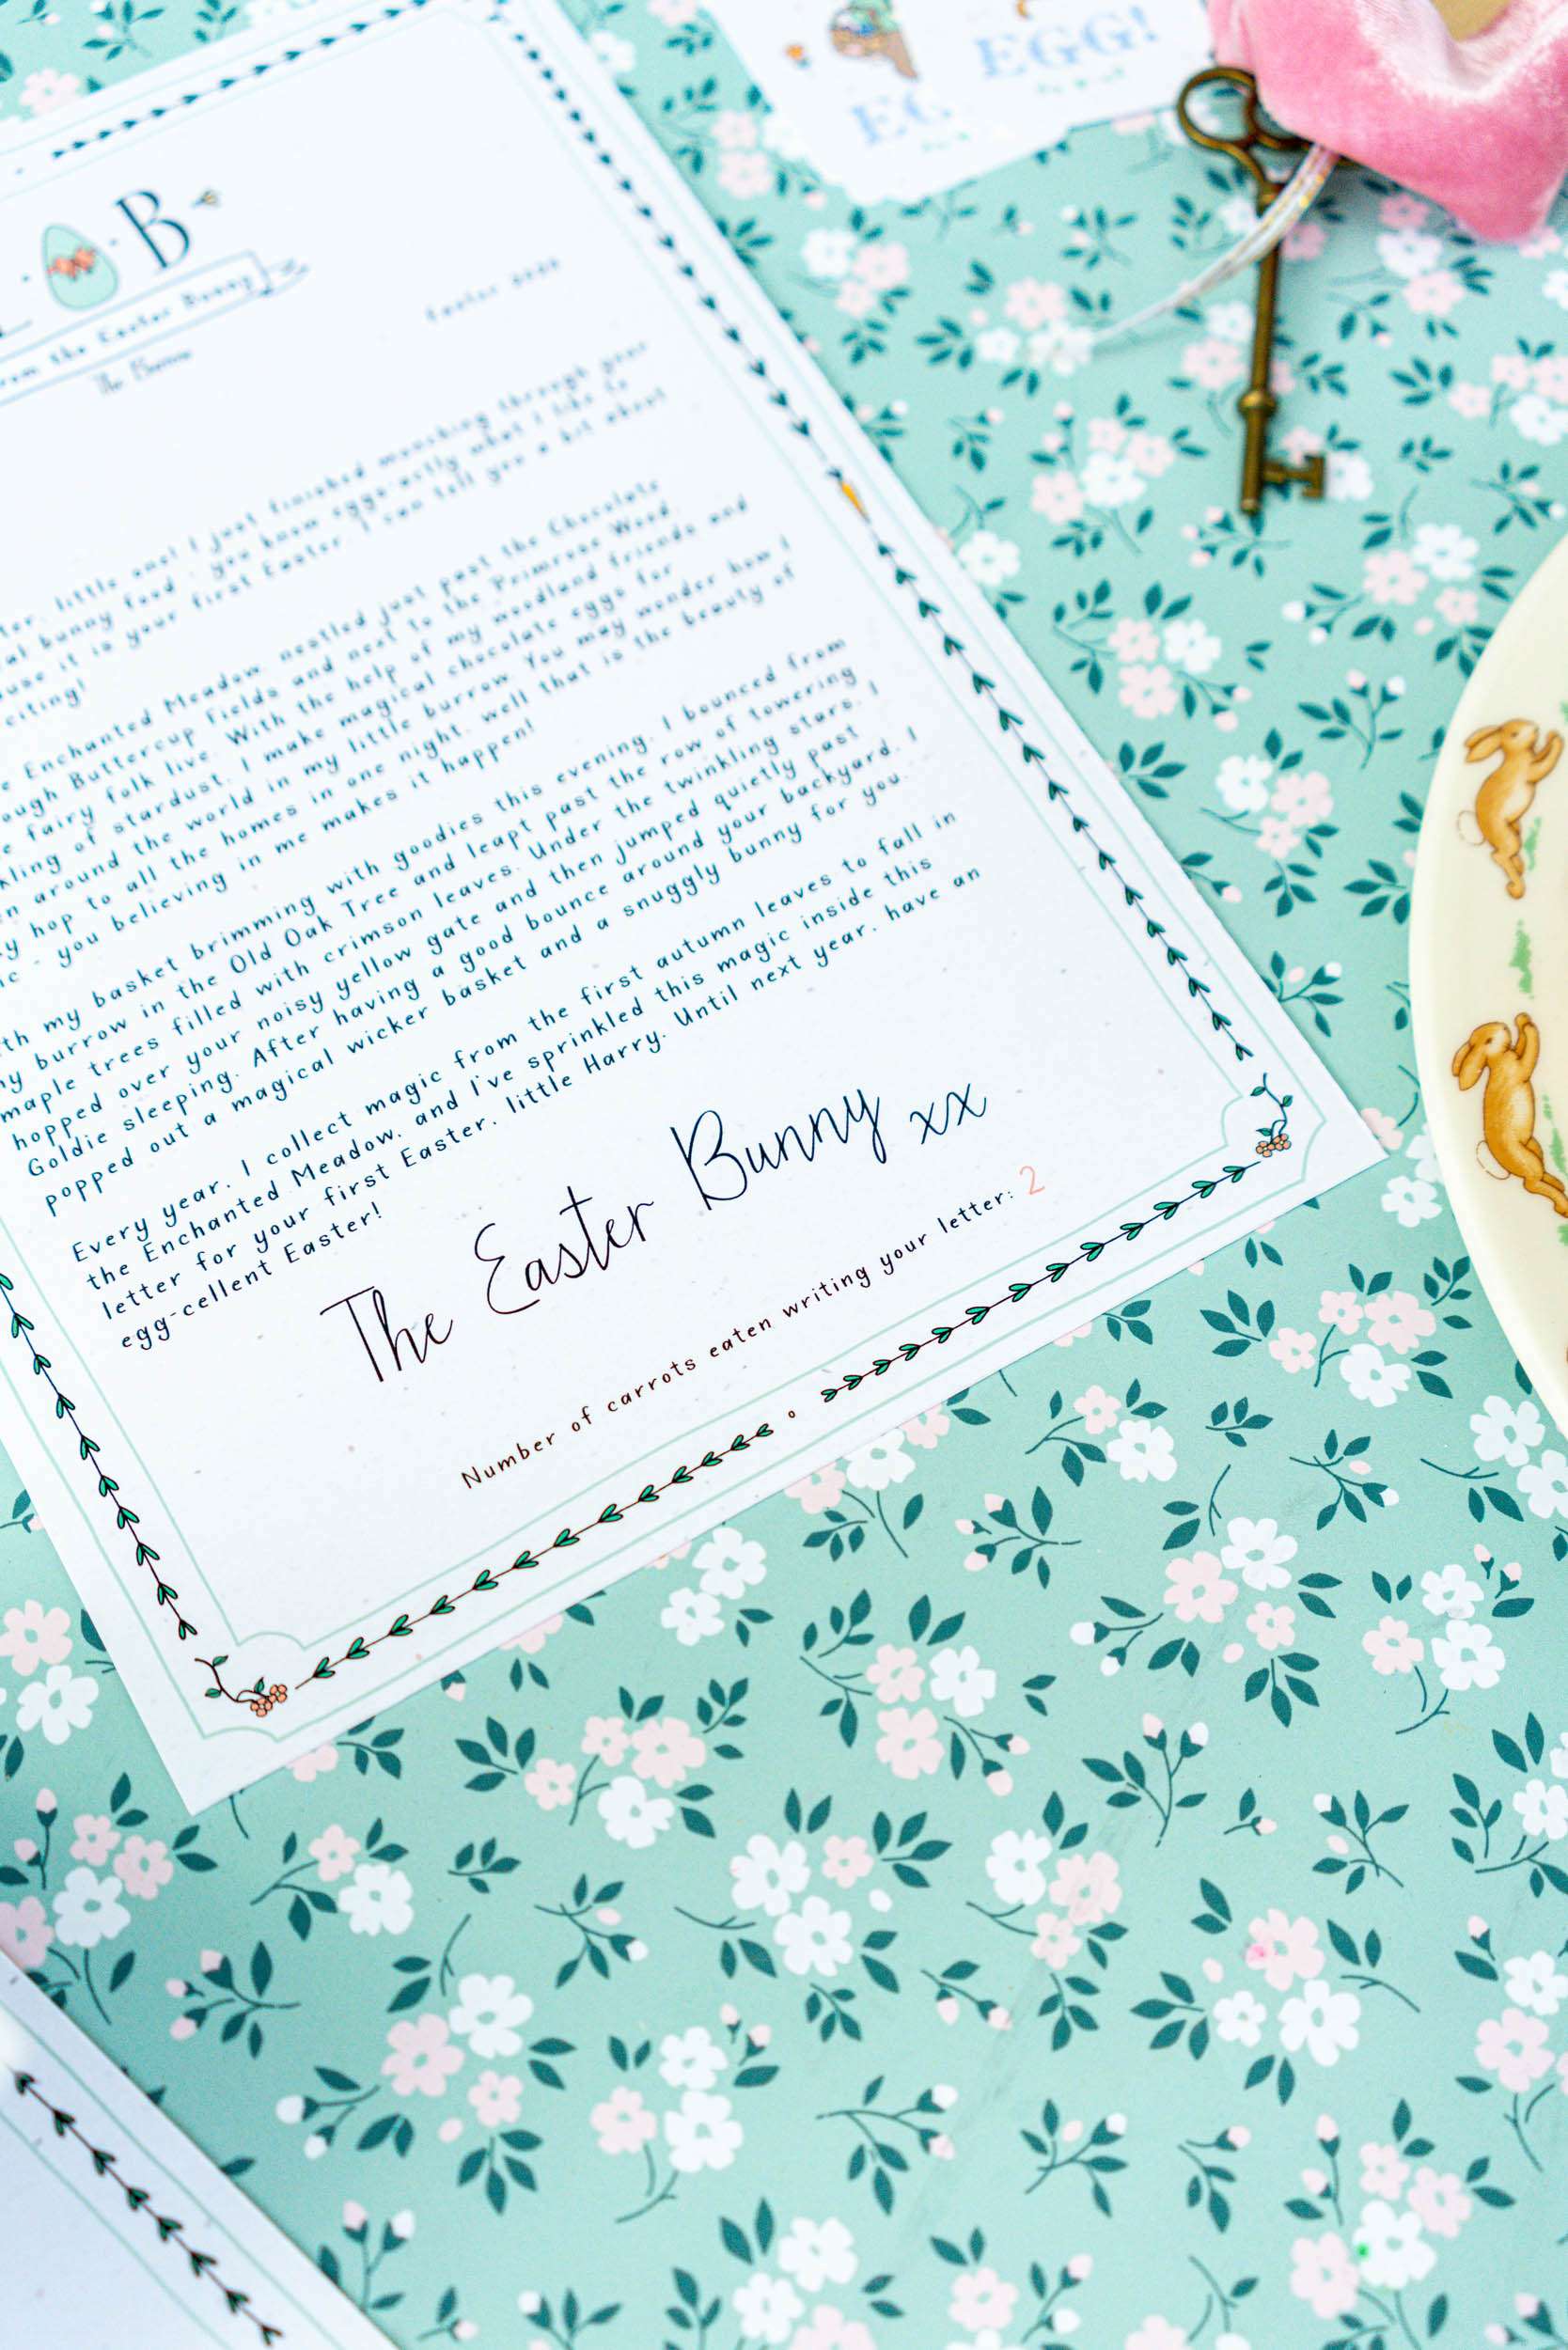 EGG!
EG
B
rom the Easter Bunny
The Burrow
Easter
little one! I just finished munching through your
bunny food - you know eggs-actly what I like to
use it is your first Easter I can tell you a bit about
citing!
Enchanted Meadow nestled just past the Chocolate
ough Buttercup Fields and next to the Primrose Wood
e fairy folk live. With the help of my woodland friends and
kling of stardust, I make magical chocolate eggs for
n around the world in my little burrow. You may wonder how I
y hop to all the homes in one night, well that is the beauty of
ic - you believing in me makes it happen!
th my basket brimming with goodies this evening, I bounced from
y burrow in the Old Oak Tree and leapt past the row of towering
maple trees filled with crimson leaves. Under the twinkling stars, I
hopped over your noisy yellow gate and then jumped quietly past
Goldie sleeping. After having a good bounce around your backyard, I
popped out a magical wicker basket and a snuggly bunny for you.
Every year, I collect magic from the first autumn leaves to fall in
the Enchanted Meadow, and I've sprinkled this magic inside this
letter for your first Easter, little Harry. Until next year, have an
egg-cellent Easter!
The Easter Bunny xx
Number of carrots eaten writing your letter: 2